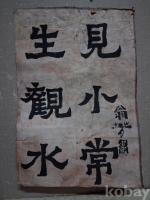 見小常
生觀水
kobay